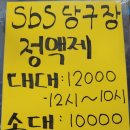 SBS 당구장
정액제
대대:12000
-12시~10시
소대:10000